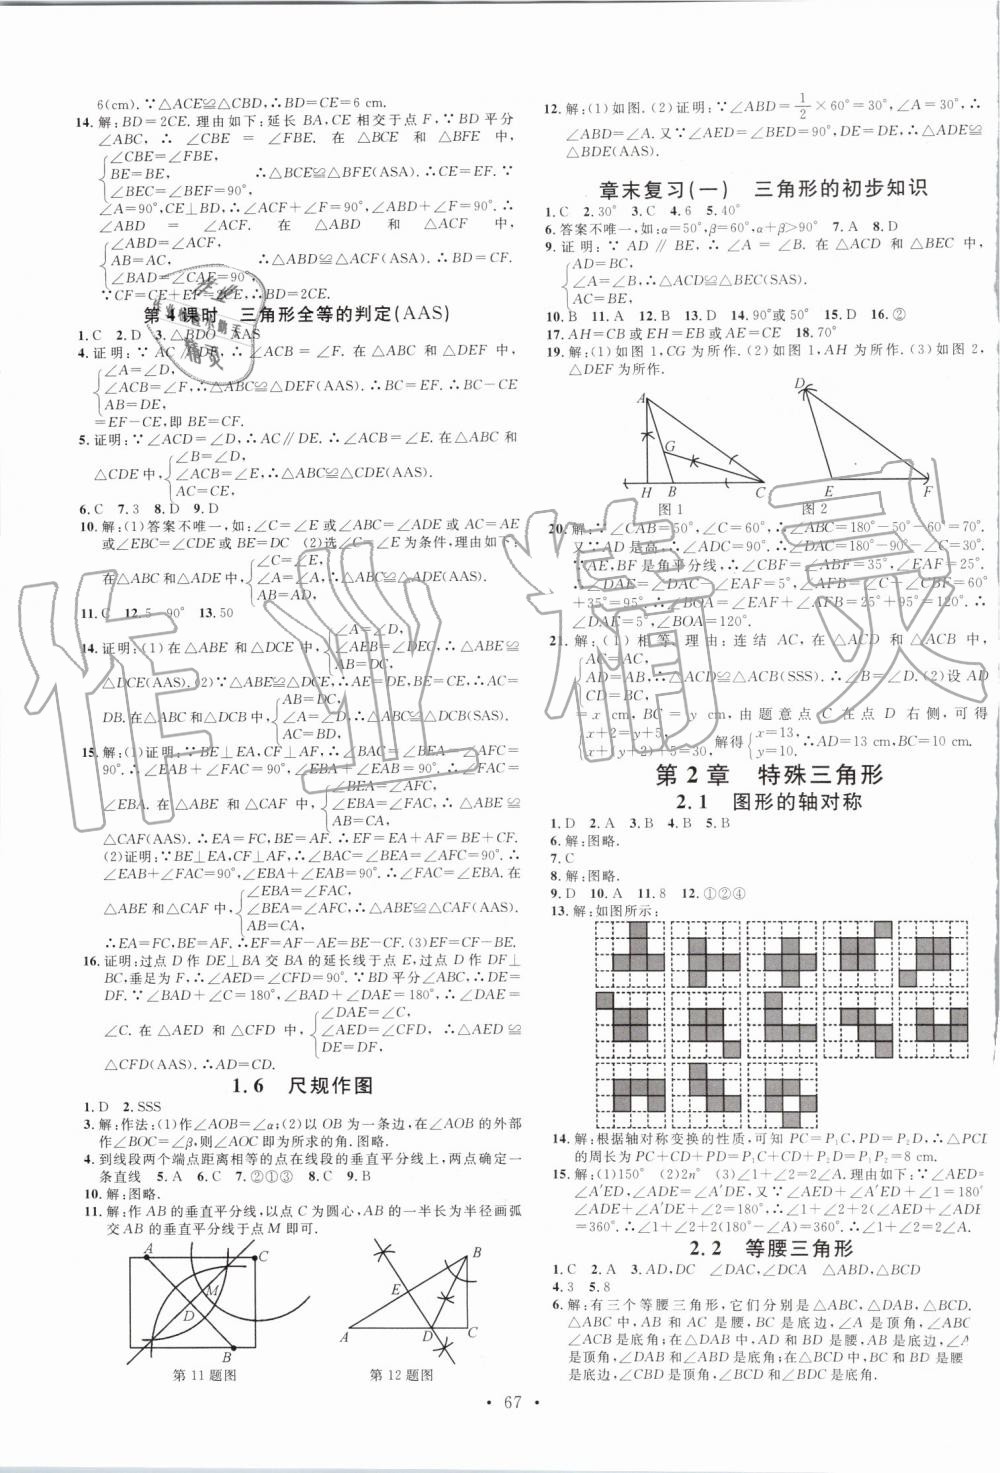 6(cm). ∵△ACE≌△CBD,∴BD=CE=6 cm.
14.解:BD=2CE.理由如下:延长 BA,CE 相交于点 F,∵BD 平分
∠ABC,∴∠CBE=∠FBE.在△BCE 和△BFE 中,
∠CBE=∠FBE,
BE=BE, ∴△BCE≌△BFE(ASA).∴CE=EF.∵
∠BEC=∠BEF=90°,
∠A=90°,CE⊥BD,∴∠ACF+∠F=90°,∠ABD+∠F=90°.∴
∠ABD=∠ACF.在△ABD和△ACF中,
∠ABD=∠ACF,
AB=AC, ∴△ABD≌△ACF(ASA).∴BD=CF.
∠BAD=∠CAF=90°,
∵CF=CE+EF=2CE,∴BD=2CE.
第 4 课时 三角形全等的判定(AAS)
1.C 2.D 3.△BDO AAS
4.证明:∵AC∥DF,∴∠ACB=∠F.在△ABC 和△DEF 中,
∠A=∠D,
∠ACB=∠F,∴△ABC≌△DEF(AAS).∴BC=EF.∴BC-CE
AB=DE,
=EF-CE,即 BE=CF.
5.证明:∵∠ACD=∠D,∴AC∥DE.∴∠ACB=∠E.在△ABC 和
∠B=∠D,
△CDE 中, ∠ACB=∠E,∴△ABC≌△CDE(AAS).
AC=CE,
6.C 7.3 8.D 9.D
10.解:(1)答案不唯一,如:∠C=∠E 或∠ABC=∠ADE 或AC=AE
或∠EBC=∠CDE 或BE=DC (2)选∠C=∠E 为条件,理由如下:
∠C=∠E,
在△ABC 和△ADE 中, ∠A=∠A,∴△ABC≌△ADE(AAS).
11.C 12.5 90° 13.50
∠A=∠D,
14.证明:(1)在△ABE 和△DCE 中, ∠AEB=∠DEC,∴△ABE≌
AB=DC,
△DCE(AAS).(2)∵△ABE≌△DCE,∴AE=DE,BE=CE.∴AC=
AB=DC,
DB.在△ABC 和△DCB 中, BC=CB,∴△ABC≌△DCB(SAS).
AC=BD,
15.解:(1)证明:∵BE⊥EA,CF⊥AF,∴∠BAC=∠BEA=∠AFC=
90°.∴∠EAB+∠FAC=90°,∠EBA+∠EAB=90°.∴∠FAC=
∠BEA=∠AFC,
∠EBA.在△ABE 和△CAF 中, ∠EBA=∠FAC,∴△ABE≌
AB=CA,
△CAF(AAS).∴EA=FC,BE=AF.∴EF=EA+AF=BE+CF.
(2)证明:∵BE⊥EA,CF⊥AF,∴∠BAC=∠BEA=∠AFC=90°.∴
∠EAB+∠FAC=90°,∠FAC+∠ACF=90°.∴∠FAC=∠EBA.在
∠EBA=∠FAC,
△ABE 和△CAF 中, ∠BEA=∠AFC,∴△ABE≌△CAF(AAS).
AB=CA,
∴EA=FC,BE=AF.∴EF=AF-AE=BE-CF.(3)EF=CF-BE.
16.证明:过点 D 作 DE⊥BA 交 BA 的延长线于点 E,过点 D 作 DF⊥
BC,垂足为 F,∴∠AED=∠CFD=90°.∵BD 平分∠ABC,∴DE=
DF.∵∠BAD+∠C=180°,∠BAD+∠DAE=180°,∴∠DAE=
∠DAE=∠C,
∠C.在△AED 和△CFD 中, ∠AED=∠CFD,∴△AED≌
DE=DF,
△CFD(AAS).∴AD=CD.
1.6 尺规作图
1.D 2.SSS
3.解:作法:(1)作∠AOB=∠α;(2)以 OB 为一条边,在∠AOB 的外部
作∠BOC=∠β,则∠AOC 即为所求的角.图略.
4.到线段两个端点距离相等的点在线段的垂直平分线上,两点确定一
条直线 5.A 6.C 7.②①③ 8.C 9.B
10.解:图略.
11.解:作 AB 的垂直平分线,以点 C 为圆心,AB 的一半长为半径画弧
交 AB 的垂直平分线于点 M 即可.
A C M D B
B E A D C
第 11 题图 第 12 题图
12.解:(1)如图.(2)证明:∵∠ABD=1/2×60°=30°,∠A=30°,∴
∠ABD=∠A.又∵∠AED=∠BED=90°,DE=DE,∴△ADE≌
△BDE(AAS).
章末复习(一) 三角形的初步知识
1.C 2.30° 3.C 4.6 5.40°
6.答案不唯一,如:α=50°,β=60°,α+β>90° 7.A 8.D
9.证明:∵AD∥BE,∴∠A=∠B.在△ACD 和△BEC 中,
AD=BC,
∠A=∠B,∴△ACD≌△BEC(SAS).
AC=BE,
10.B 11.A 12.B 13.D 14.90°或50° 15.D 16.②
17.AH=CB 或EH=EB 或AE=CE 18.70°
19.解:(1)如图 1,CG 为所作.(2)如图 1,AH 为所作.(3)如图 2,
△DEF 为所作.
A G H B C
D E F
图 1 图 2
20.解:∵∠CAB=50°,∠C=60°,∴∠ABC=180°-50°-60°=70°.
又∵AD 是高,∴∠ADC=90°.∴∠DAC=180°-90°-∠C=30°.
∵AE,BF 是角平分线,∴∠CBF=∠ABF=35°,∠EAF=25°.
∴∠DAE=∠DAC-∠EAF=5°,∠AFB=∠C+∠CBF=60°
+35°=95°.∴∠BOA=∠EAF+∠AFB=25°+95°=120°.
∴∠DAE=5°,∠BOA=120°.
21.解:(1)相等.理由:连结 AC,在△ACD 和△ACB 中,
AC=AC,
AD=AB,∴△ACD≌△ACB(SSS).∴∠B=∠D.(2)设 AD
CD=BC,
=x cm,BC=y cm,由题意点 C 在点 D 右侧,可得
x+2=y+5,
x+(y+2)+5=30, 解得 x=13,
y=10. ∴AD=13 cm,BC=10 cm.
第 2 章 特殊三角形
2.1 图形的轴对称
1.D 2.A 3.B 4.B 5.B
6.解:图略.
7.C
8.解:图略.
9.D 10.A 11.8 12.①②④
13.解:如图所示:
14.解:根据轴对称变换的性质,可知 PC=P₁C,PD=P₂D,∴△PCD
的周长为 PC+CD+PD=P₁C+CD+P₂D=P₁P₂=8 cm.
15.解:(1)150° (2)2n° (3)∠1+∠2=2∠A.理由如下:∵∠AED=
∠A′ED,∠ADE=∠A′DE,又∵∠AED+∠A′ED+∠1=180°,
∠ADE+∠A′DE+∠2=180°,∴∠1+∠2+2(∠AED+∠ADE)
=360°.∴∠1+∠2+2(180°-∠A)=360°.∴∠1+∠2=2∠A.
2.2 等腰三角形
1.C 2.A 3.AD,DC ∠DAC,∠DCA △ABD,△BCD
4.3 5.8
6.解:有三个等腰三角形,它们分别是△ABC,△DAB,△BCD.在
△ABC 中,AB 和 AC 是腰,BC 是底边,∠A 是顶角,∠ABC 和
∠ACB 是底角;在△DAB 中,DA 和 DB 是腰,AB 是底边,∠ADB
是顶角,∠DAB 和∠ABD 是底角;在△BCD 中,BC 和 BD 是腰,CD
是底边,∠CBD 是顶角,∠BDC 和∠BCD 是底角.
• 67 •
作业精灵